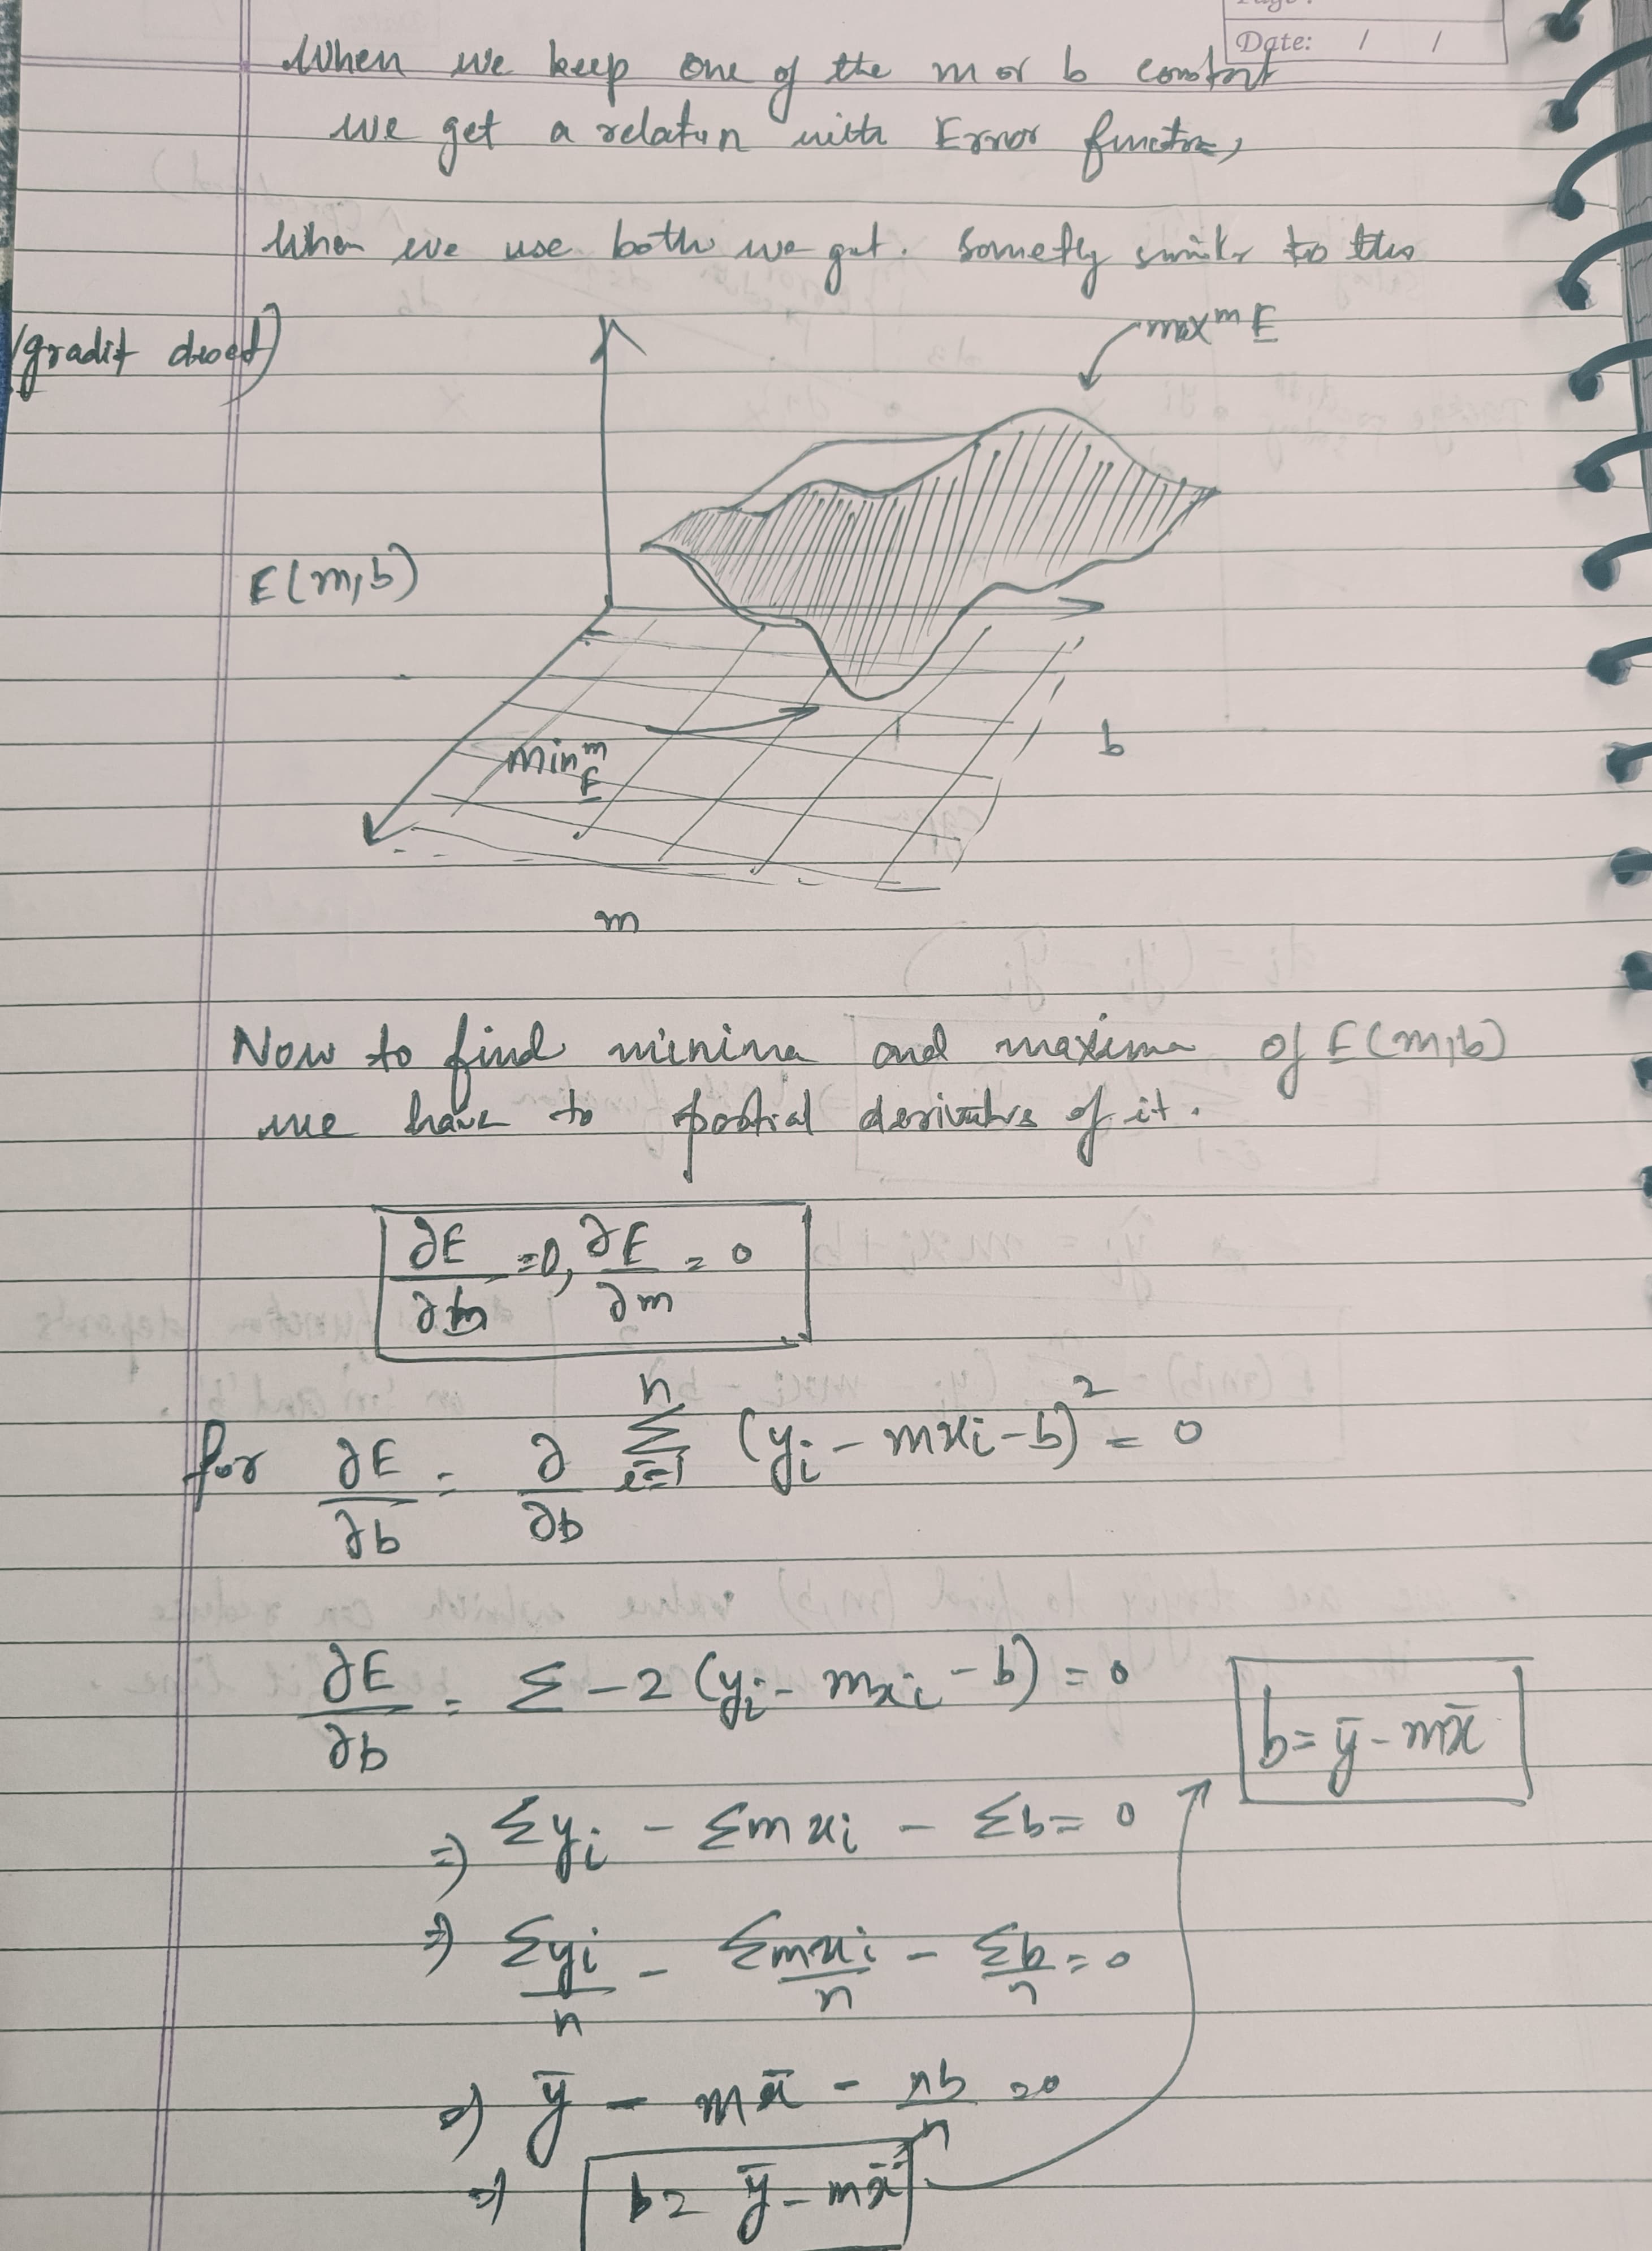 Date: / /
When we keep one of the m or b constant
we get a relatin with Error function,
When we use both we get. somethy similr to this
(gradit
max^m E
E(m,b)
b
min^m E
m
Now to find minima and maxima of E(m,b)
we have to partial derivatives of it.
∂E/∂b =0, ∂E/∂m = 0
for ∂E/∂b = ∂/∂b Σ_{i=1}^{n} (y_i - mx_i - b)^2 = 0
∂E/∂b = Σ -2 (y_i - mx_i - b) = 0
b = ȳ - mx̄
⇒ Σy_i - Σmx_i - Σb = 0
⇒ Σy_i/n - Σmx_i/n - Σb/n = 0
⇒ ȳ - mx̄ - nb/n = 0
⇒ b = ȳ - mx̄